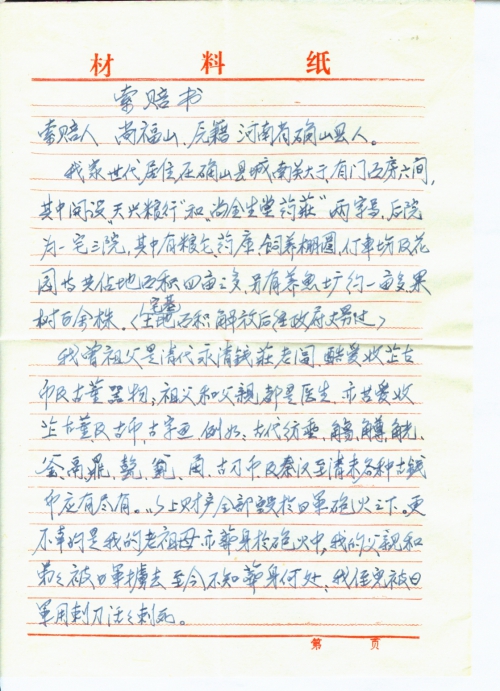 材 料 纸
索赔书
索赔人 尚福山、原籍 河南省确山县人。
我家世代居住在确山县城南关大街,有门面房六间,
其中间设"天兴粮行"和"尚全生堂药莊"两字号,后院
为一宅三院,其中有粮仓、药库、饲养棚圈、仃車场及花
园等共佔地面积四亩之多,另有养鱼圹约一亩多,果
树百余株。(全宅基地面积解放后经政府丈男过)
我曾祖父是清代永清钱莊老闆,酷爱收芷古
币及古董器物;祖父和父親都是医生,亦甚爱收
芷古董及古币,古字画,例如:古代彷壺、觴、觶、觥、
釜、鬲、鼎、甕、甬、古刀币及秦汉至清末各种古銭
币应有尽有。以上财产全部毁扵日軍砲火之下。更
不幸的是我的老祖母亦葬身扵砲火中,我的父親和
弟弟被日軍擄去至今不知葬身何处,我侄兒被日
軍用刺刀活活刺死。
第 页